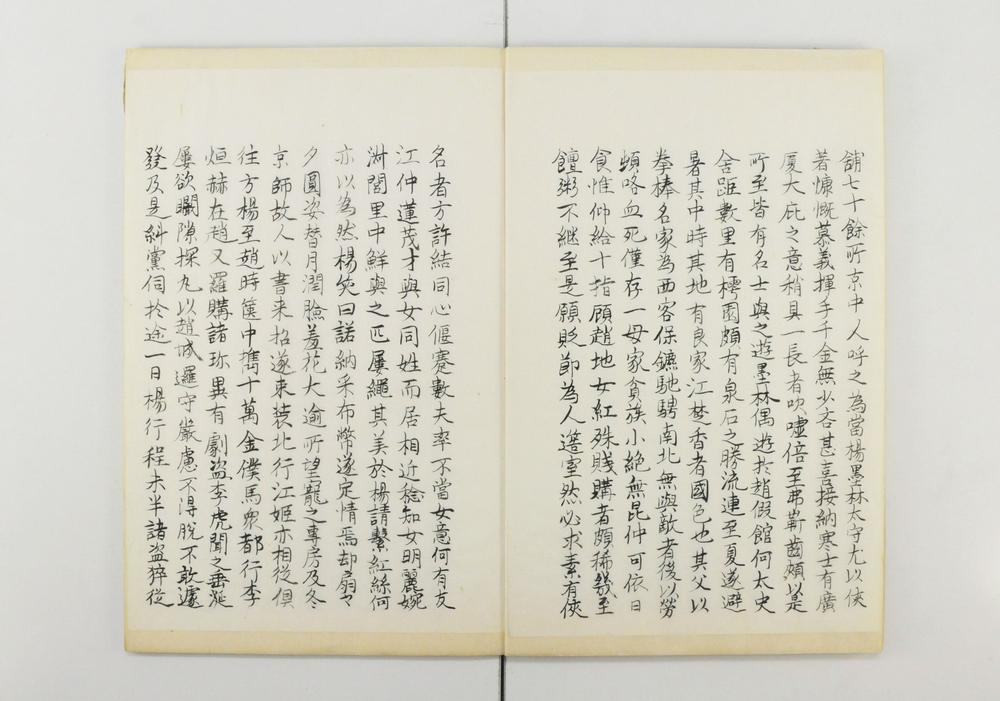 舖七十餘所京中人呼之為當楊墨林太守尤以俠
著慷慨慕義揮手千金無少吝甚喜接納寒士有廣
廈大庇之意稍具一長者吹噓倍至弗靳齒頰以是
所至皆有名士與之遊墨林偶遊於趙假館何太史
舍距數里有樗園頗有泉石之勝流連至夏遂避
暑其中時其地有良家江楚香者國色也其父以
拳棒名家為西客保鑣馳騁南北無與敵者後以勞
頓咯血死僅存一母家貧族小絕無昆仲可依日
食惟仰給十指顧趙地女紅殊賤購者頗稀幾至
饘粥不繼至是願貶節為人簉室然必求素有俠
名者方許結同心偃蹇數夫率不當女意何有友
江仲蓮茂才與女同姓而居相近稔知女明麗婉
淑閭里中鮮與之匹屢繩其美於楊請繫紅絲何
亦以為然楊笑曰諾納采布幣遂定情焉却扇之
夕圓姿替月潤臉羞花大逾所望寵之專房及冬
京師故人以書来招遂束装北行江姬亦相從俱
往方楊至趙時篋中攜十萬金僕馬衆都行李
烜赫在趙又羅購諸珎異有劇盜李虎聞之垂涎
屢欲瞯隙探丸以趙城邏守嚴慮不得脫不敢遽
發及是糾黨伺於途一日楊行程未半諸盜猝從